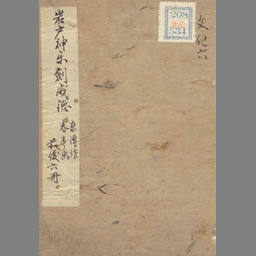 岩戸神楽剣威徳
京傳作
春亭画
前後六冊
208
534
文化六